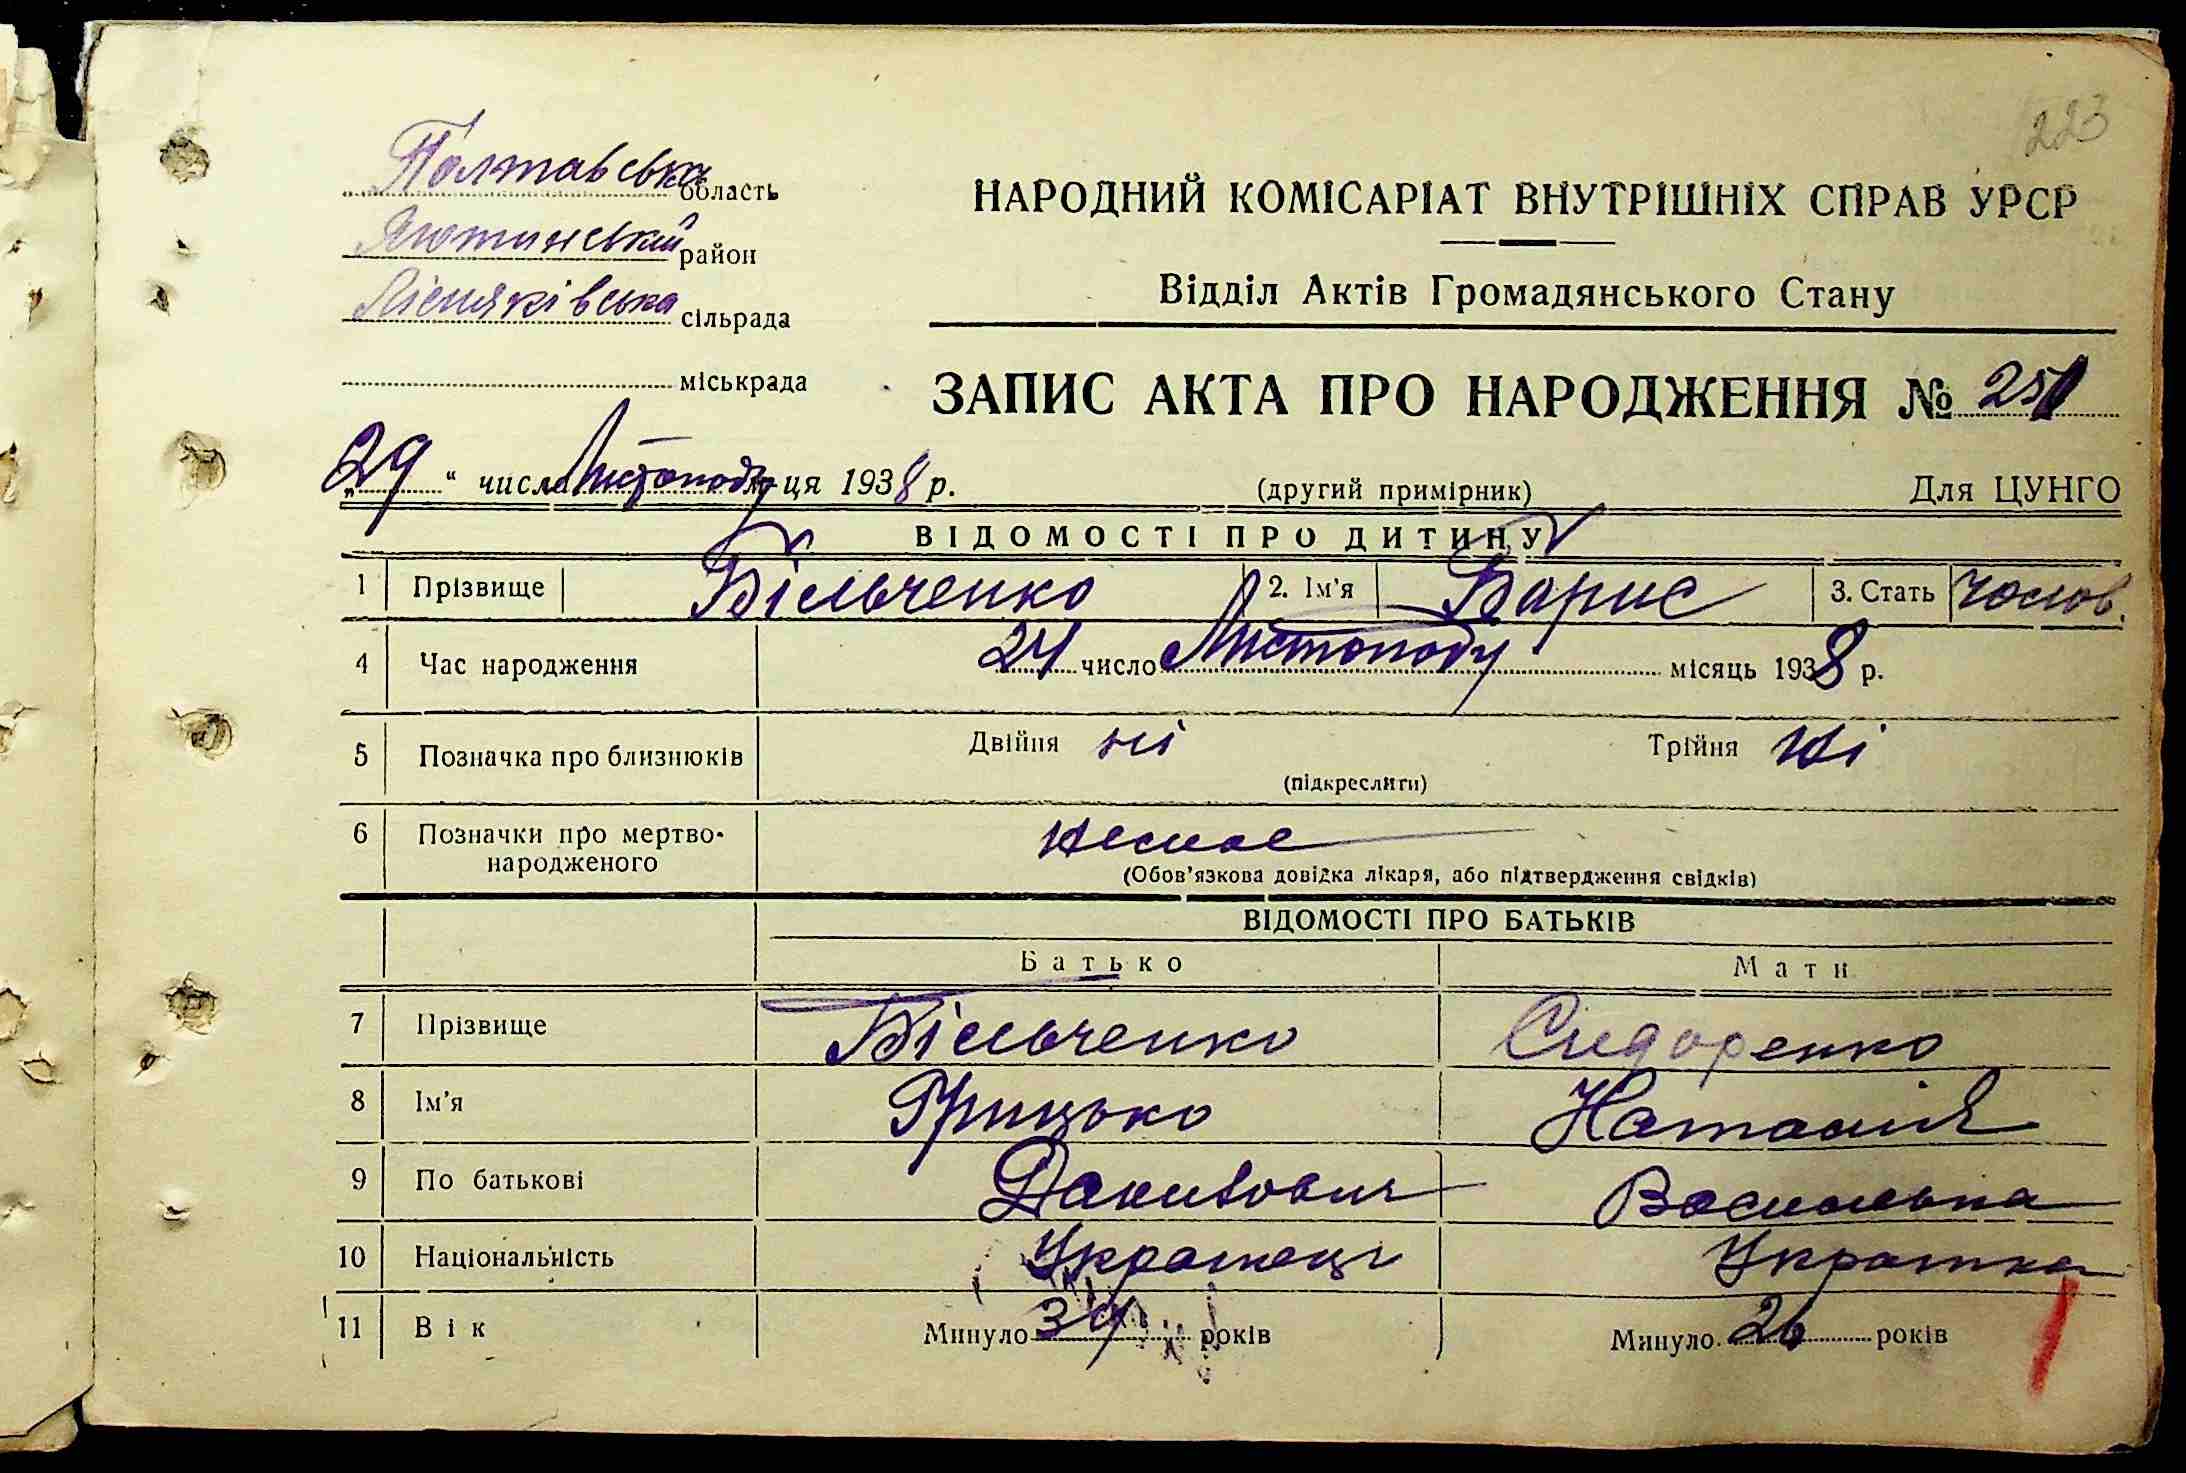 223
Полтавська область
Яготинський район
Лісняківська сільрада
міськрада
НАРОДНИЙ КОМІСАРІАТ ВНУТРІШНІХ СПРАВ УРСР
Відділ Актів Громадянського Стану
ЗАПИС АКТА ПРО НАРОДЖЕННЯ №
„29“ число Листопаду ця 1938 р. (другий примірник) Для ЦУНГО
ВІДОМОСТІ ПРО ДИТИНУ
1 Прізвище Більченко 2. Ім'я Барис 3. Стать чолов.
4 Час народження 24 число Листопаду місяць 1938 р.
5 Позначка про близнюків Двійня ні Трійня ні
(підкреслити)
6 Позначки про мертво-
народженого Немає
(Обов'язкова довідка лікаря, або підтвердження свідків)
ВІДОМОСТІ ПРО БАТЬКІВ
Батько Мати
7 Прізвище Більченко Сидоренко
8 Ім'я Грицько Наталія
9 По батькові Данилович Васильевна
10 Національність Українець Українка
11 Вік Минуло 34 років Минуло 26 років